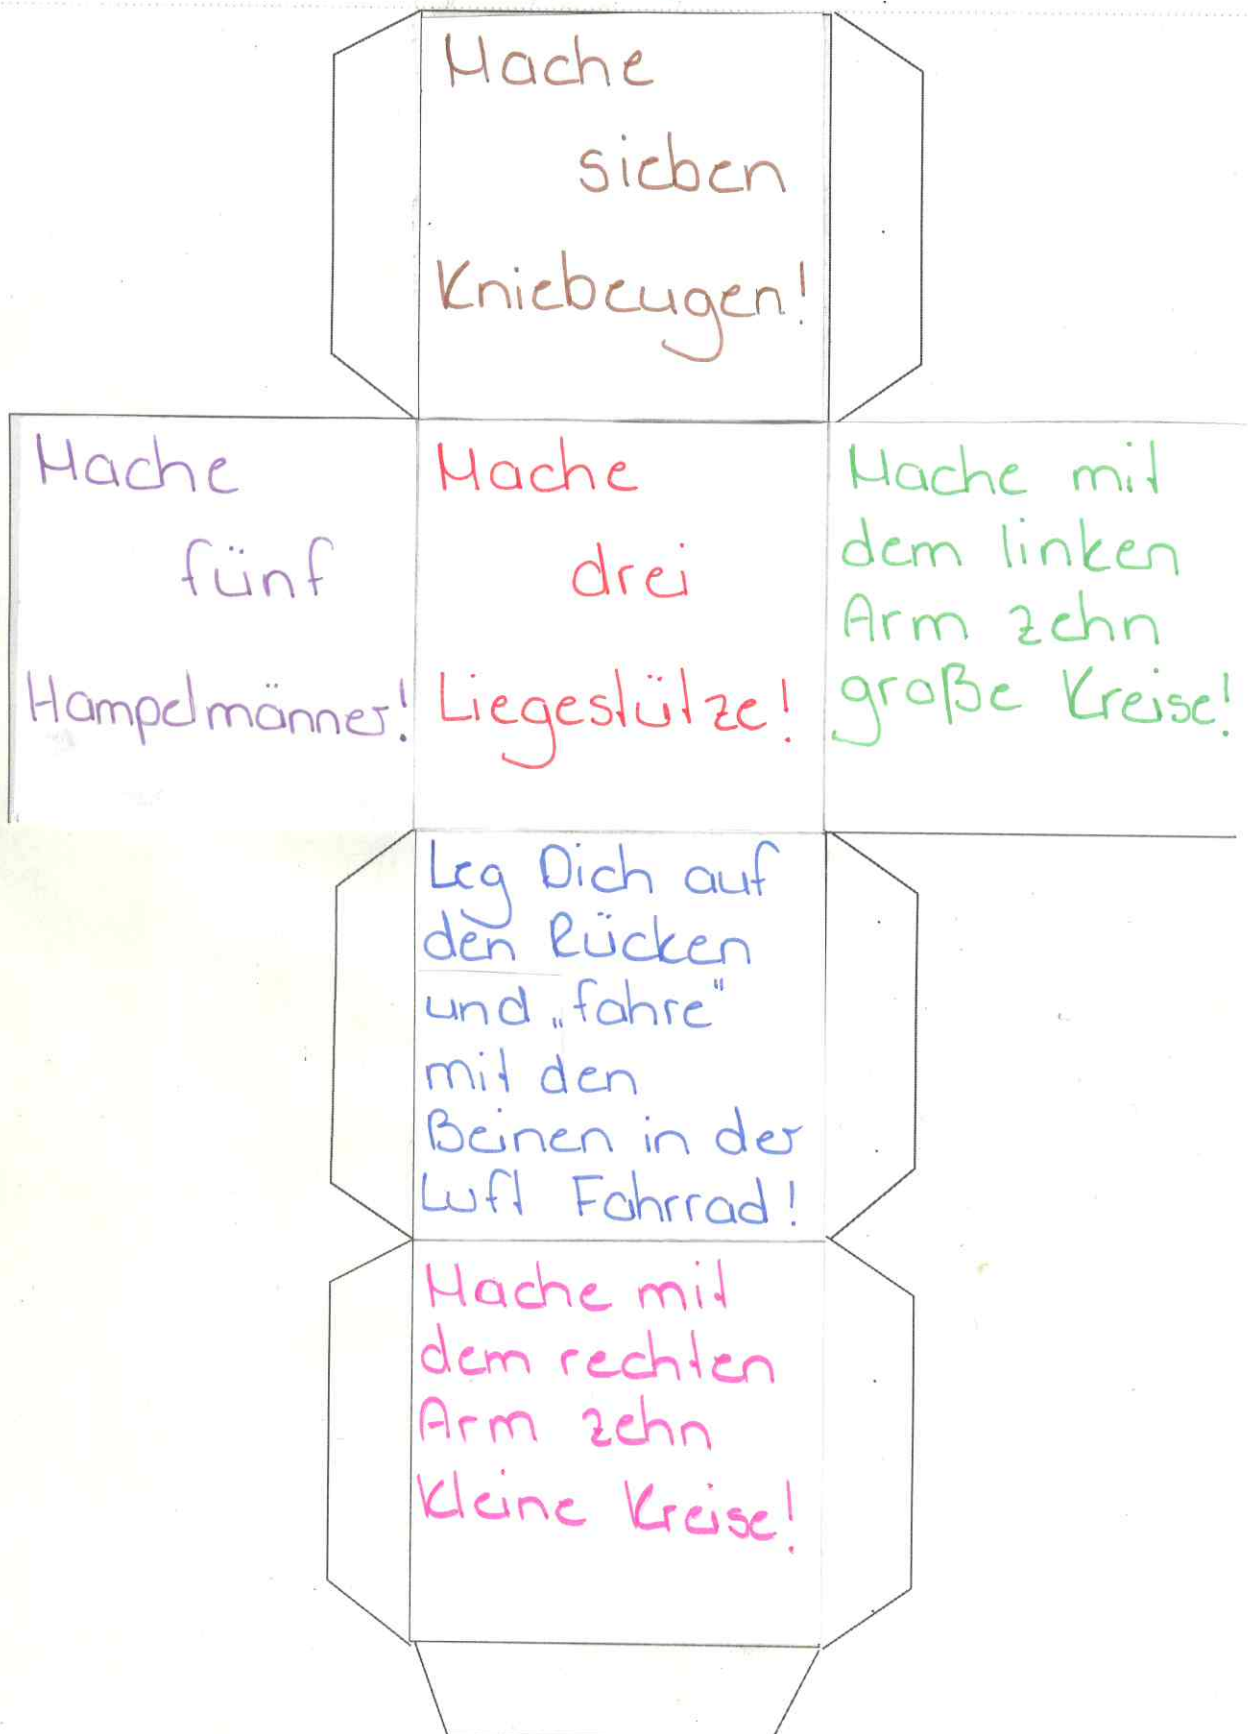 Mache
sieben
Kniebeugen!
Mache
fünf
Hampelmänner!
Mache
drei
Liegestütze!
Mache mit
dem linken
Arm zehn
große Kreise!
Leg Dich auf
den Rücken
und „fahre"
mit den
Beinen in der
Luft Fahrrad!
Mache mit
dem rechten
Arm zehn
kleine Kreise!